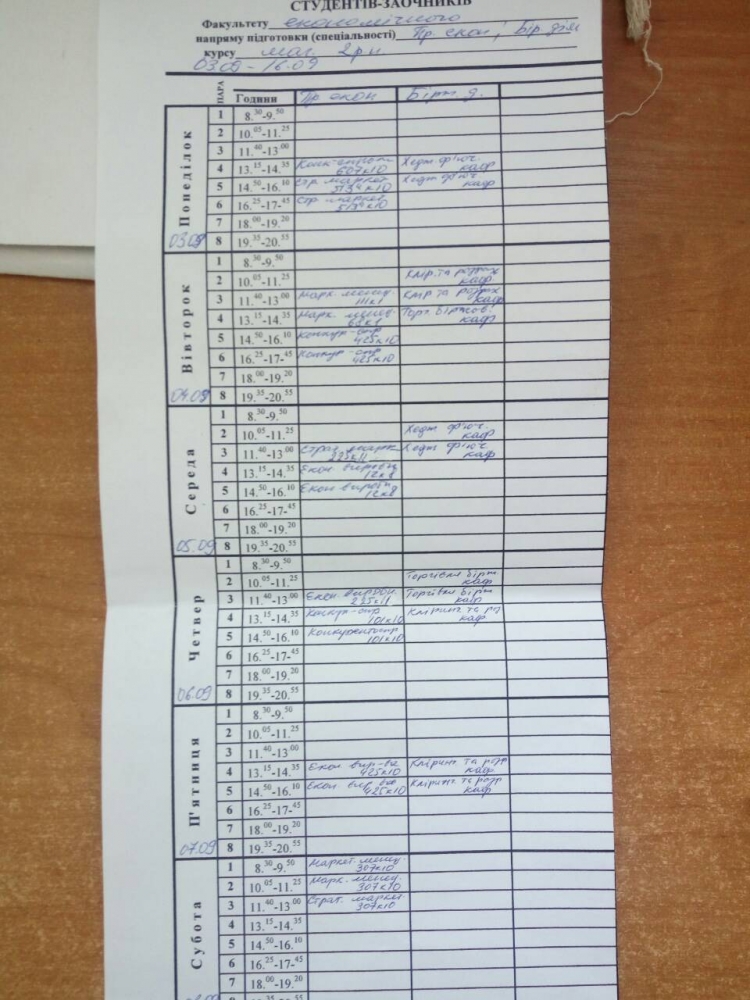 СТУДЕНТІВ-ЗАОЧНИКІВ
Факультету економічного
напряму підготовки (спеціальності) Пр. екон; Бір.
курсу маг. 2 р.н.
03.09 - 16.09
ПАРА Години Пр екон Бірж. д.
Понеділок 03.09
1 8.30-9.50
2 10.05-11.25
3 11.40-13.00
4 13.15-14.35 607к10 Хедж ф'юч. каф
5 14.50-16.10 Стр. маркет 513ак10 Хедж ф'юч. каф
6 16.25-17-45 Стр. маркет 513ак10
7 18.00-19.20
8 19.35-20.55
Вівторок 04.09
1 8.30-9.50
2 10.05-11.25 Клір. та розрах каф
3 11.40-13.00 Марк. менедж. 111к1 Клір та розрах каф
4 13.15-14.35 Марк. менедж. Торг. біржов. каф
5 14.50-16.10 Конкур-спр 425к10
6 16.25-17-45 Конкур-спр 425к10
7 18.00-19.20
8 19.35-20.55
Середа 05.09
1 8.30-9.50
2 10.05-11.25 Хедж ф'юч. каф
3 11.40-13.00 Страт. марк 225к11 Хедж ф'юч. каф
4 13.15-14.35 Екон. виробн 12к8
5 14.50-16.10 Екон виробн 12к8
6 16.25-17-45
7 18.00-19.20
8 19.35-20.55
Четвер 06.09
1 8.30-9.50
2 10.05-11.25 Торгівля бірж. каф
3 11.40-13.00 Екон. виробн. 225к11 Торгівля бірж. каф
4 13.15-14.35 Конкур-спр 101к10 Кліринг та ро каф
5 14.50-16.10 Конкурентоспр 101к10
6 16.25-17-45
7 18.00-19.20
8 19.35-20.55
П'ятниця 07.09
1 8.30-9.50
2 10.05-11.25
3 11.40-13.00
4 13.15-14.35 Екон вир-ва 425к10 Кліринг та розр каф
5 14.50-16.10 Екон. вир-ва 425к10 Кліринг та розр каф
6 16.25-17-45
7 18.00-19.20
8 19.35-20.55
Субота
1 8.30-9.50 Маркет. менедж. 307к10
2 10.05-11.25 Марк. менедж. 307к10
3 11.40-13.00 Страт. маркет. 307к10
4 13.15-14.35
5 14.50-16.10
6 16.25-17-45
7 18.00-19.20